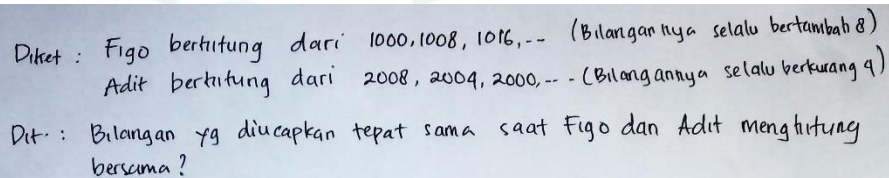 Diket : Figo berhitung dari 1000, 1008, 1016, -- (Bilangannya selalu bertambah 8)
Adit berhitung dari 2008, 2004, 2000, -- - (Bilangannya selalu berkurang 4)
Dit. : Bilangan yg diucapkan tepat sama saat Figo dan Adit menghitung
bersama?